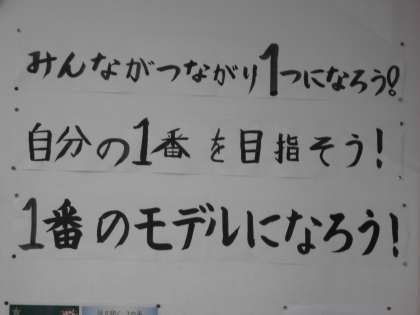 みんながつながり1つになろう!
自分の1番を目指そう!
1番のモデルになろう!